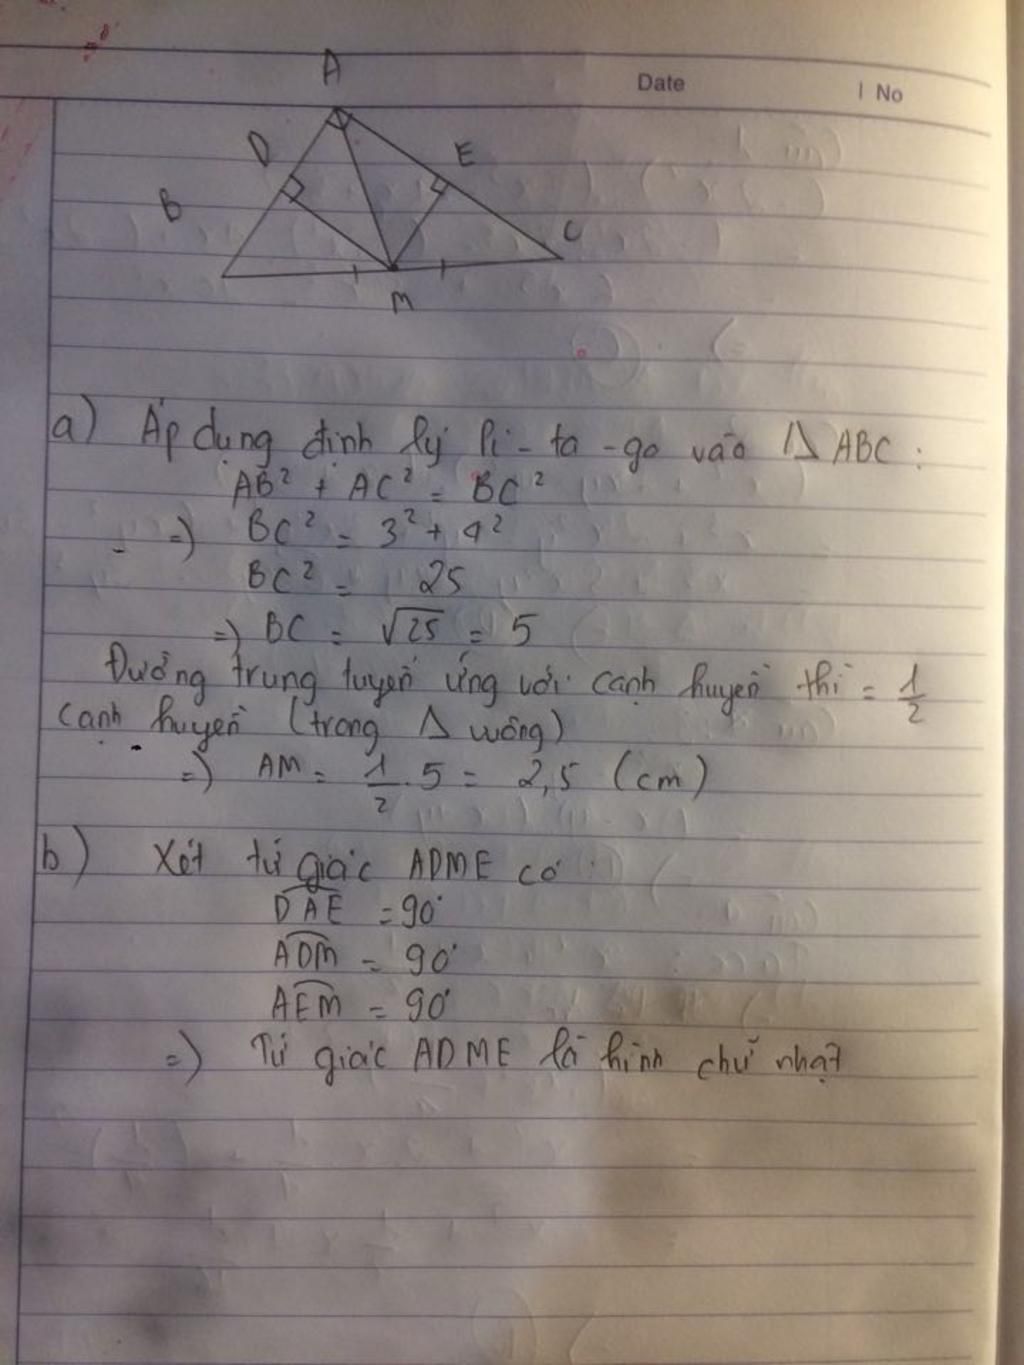 Date
No
A
D
E
B
C
M
a) Áp dụng định lý Pi-ta-go vào Δ ABC:
AB² + AC² = BC²
=) BC² = 3² + 4²
BC² = 25
=) BC = √25 = 5
Đường trung tuyến ứng với cạnh huyền thì = 1/2
cạnh huyền (trong Δ vuông)
=) AM = 1/2 . 5 = 2,5 (cm)
b) Xét tứ giác ADME có:
DAE = 90°
ADM = 90°
AEM = 90°
=) Tứ giác ADME là hình chữ nhật